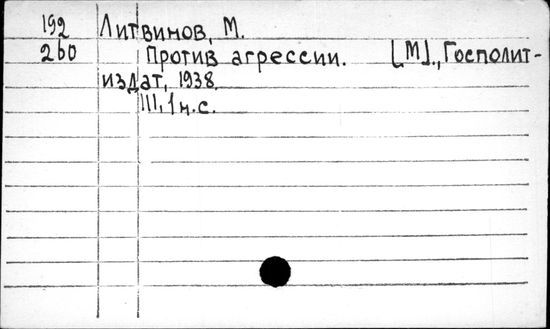 192 Литвинов, М.
260 Против агрессии. [М]., Госполит-
издат, 1938.
111, 1 н.с.